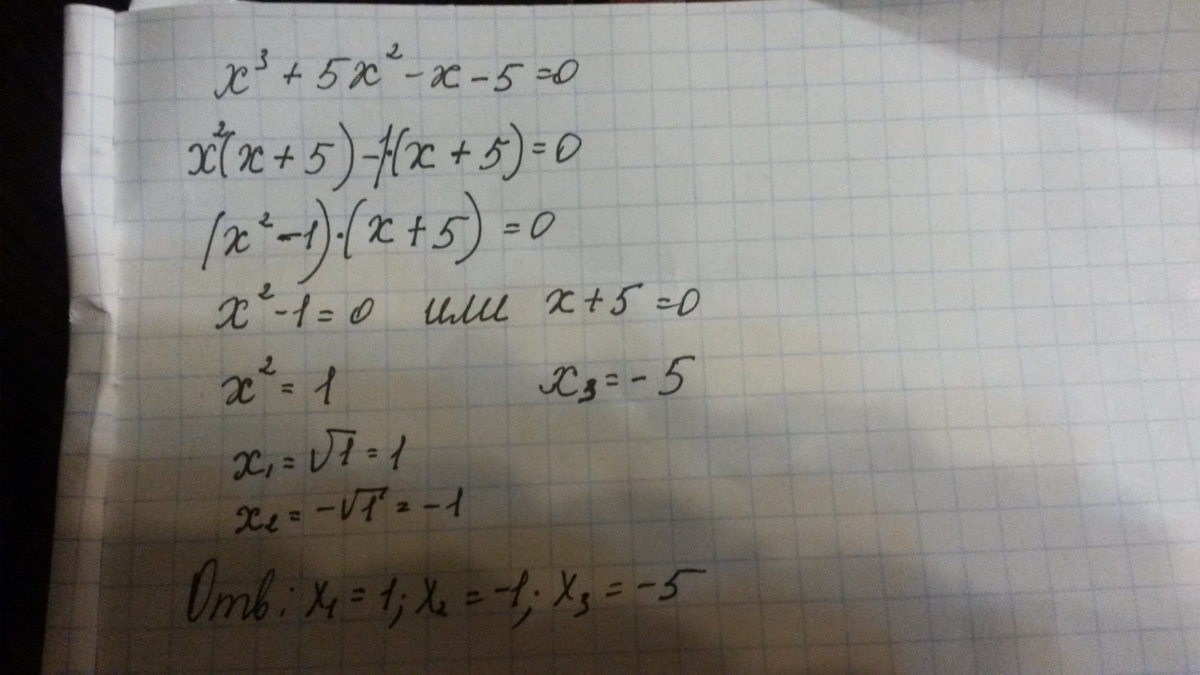 x³ + 5x² - x - 5 = 0
x²(x + 5) - 1·(x + 5) = 0
(x² - 1)·(x + 5) = 0
x² - 1 = 0 или x + 5 = 0
x² = 1 x₃ = - 5
x₁ = √1 = 1
x₂ = -√1 = -1
Отв: x₁ = 1; x₂ = -1; x₃ = -5